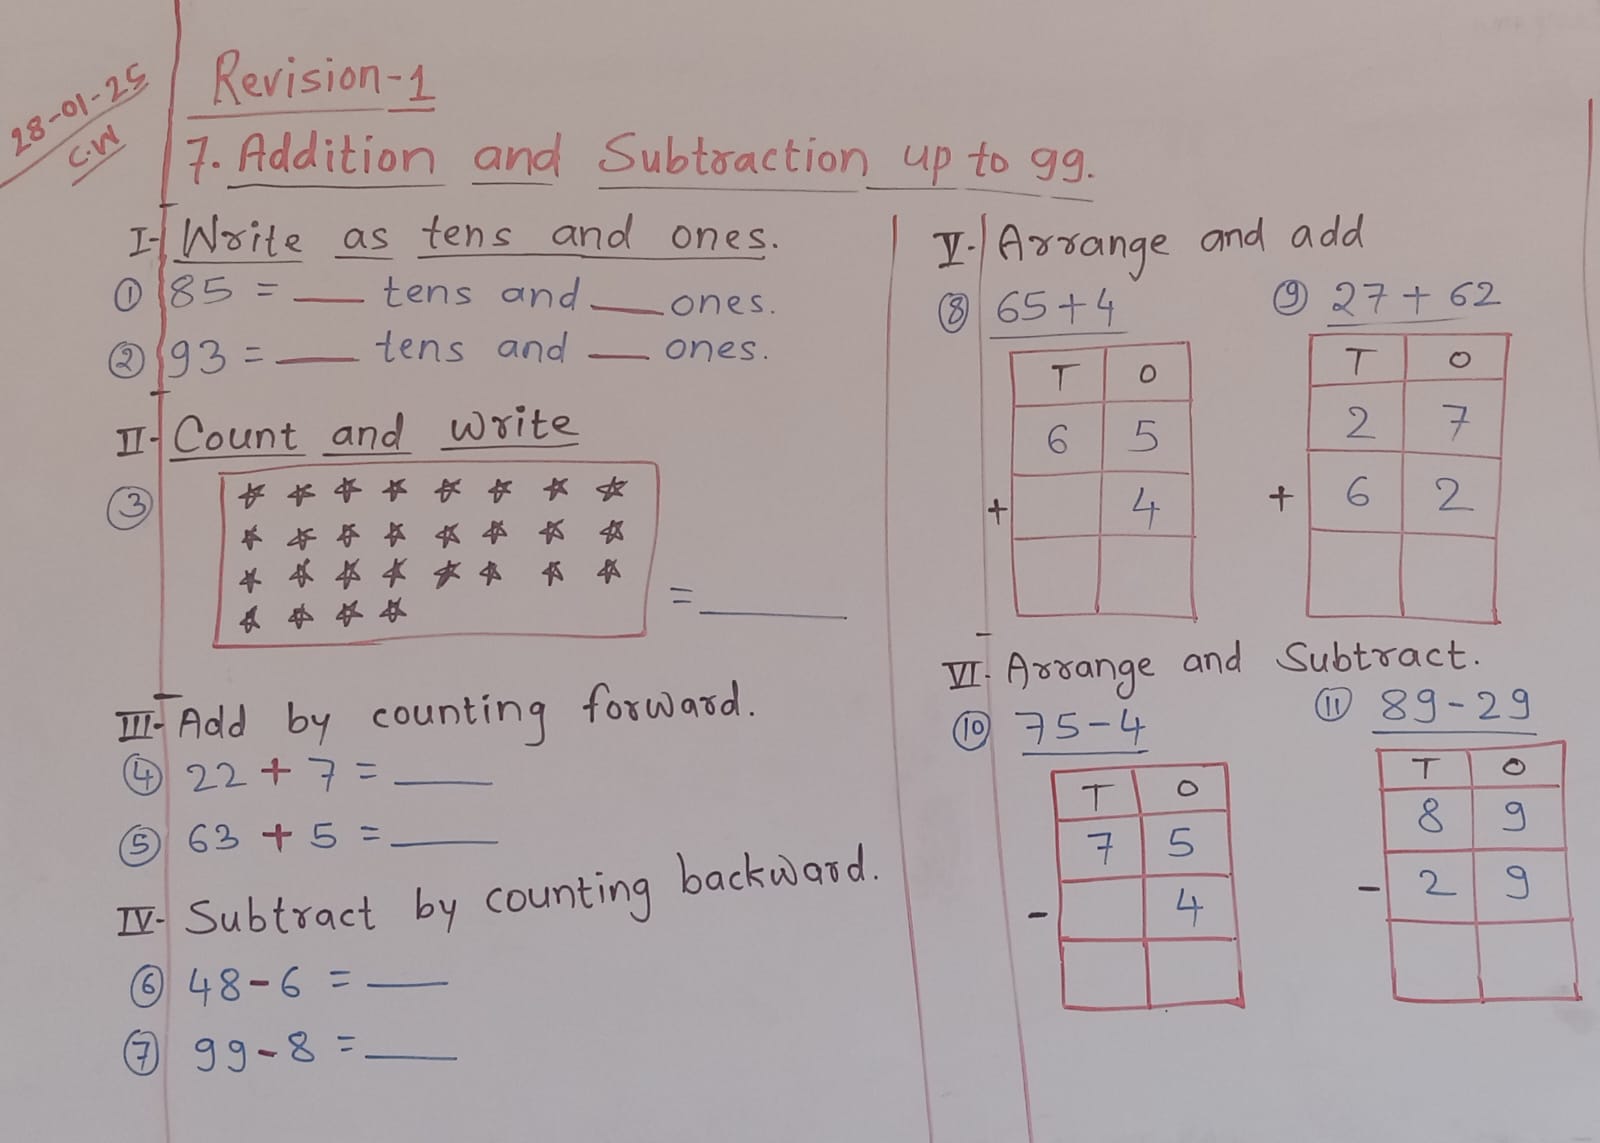 28-01-25
C.W
Revision-1
7. Addition and Subtraction up to 99.
I- Write as tens and ones.
① 85 = ___ tens and ___ ones.
② 93 = ___ tens and ___ ones.
II- Count and write
③
= ___
III- Add by counting forward.
④ 22 + 7 = ___
⑤ 63 + 5 = ___
IV- Subtract by counting backward.
⑥ 48 - 6 = ___
⑦ 99 - 8 = ___
V- Arrange and add
⑧ 65 + 4
T O
6 5
+ 4
⑨ 27 + 62
T O
2 7
+ 6 2
VI- Arrange and Subtract.
⑩ 75 - 4
T O
7 5
- 4
⑪ 89 - 29
T O
8 9
- 2 9